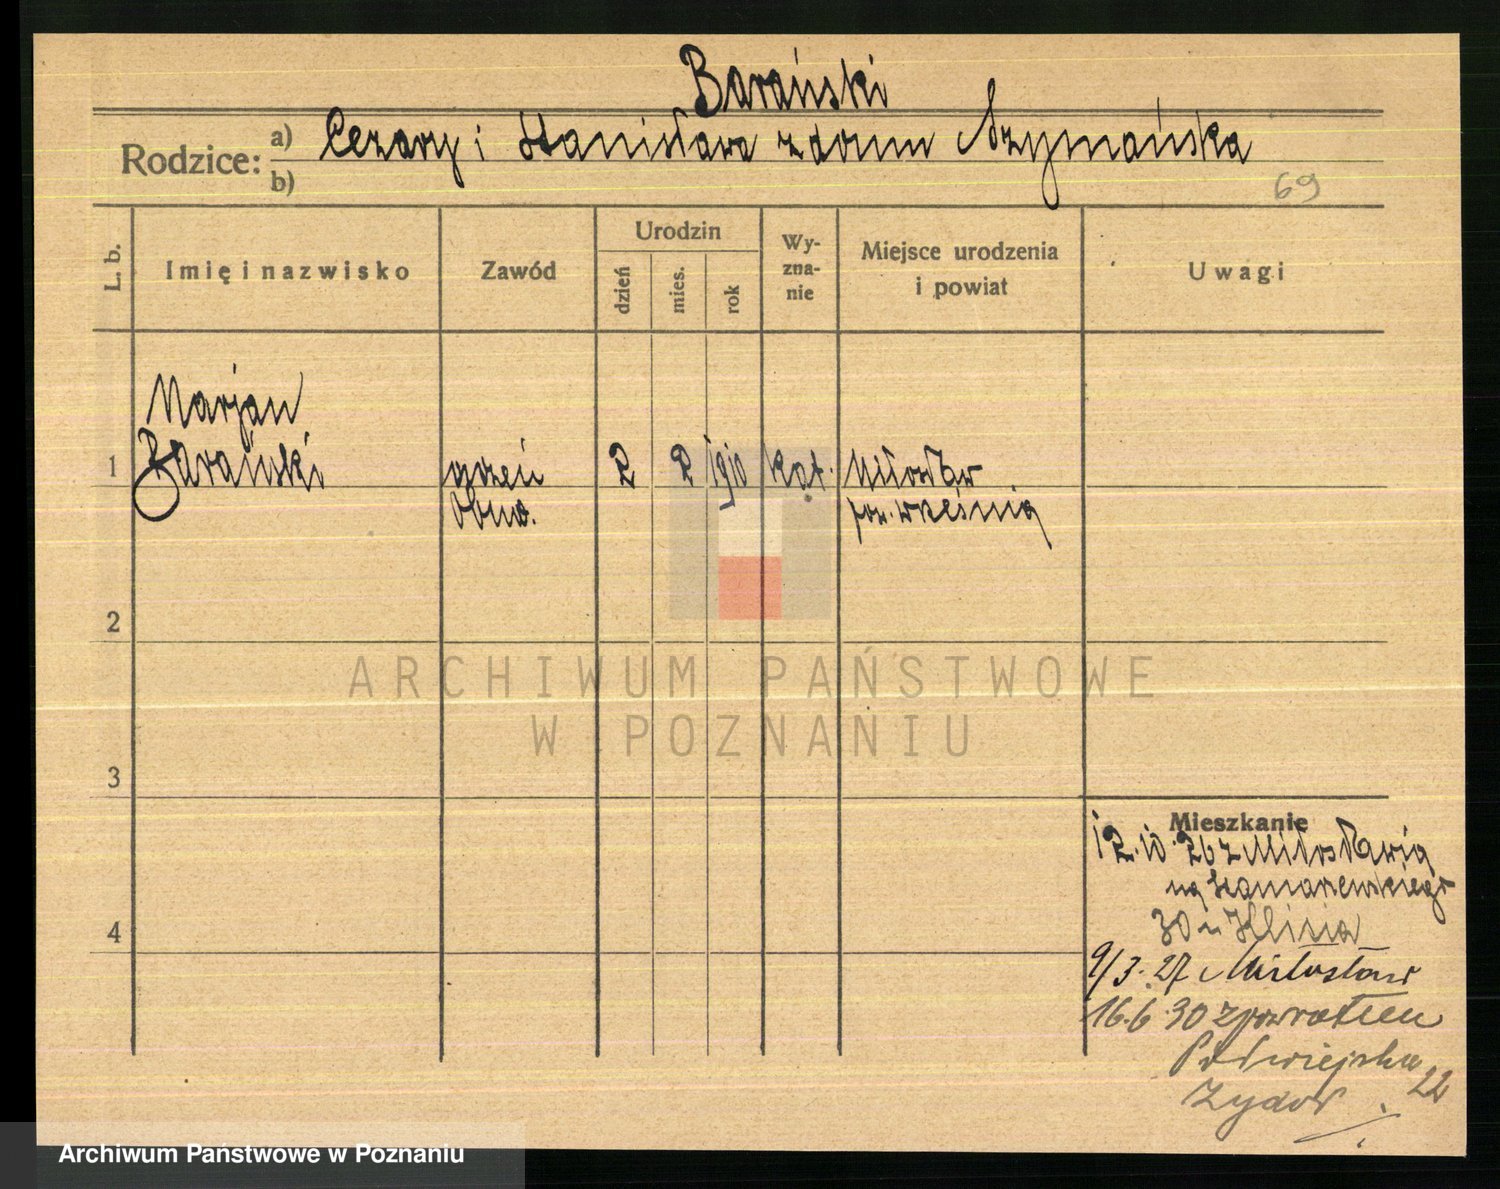 Barański
Rodzice: a) Cezary i Stanisława z domu Szymańska
b)
69
L. b.
Imię i nazwisko
Zawód
Urodzin
dzień
mies.
rok
Wy-
zna-
nie
Miejsce urodzenia
i powiat
Uwagi
Marjan
1 Barański uczeń 2 2 1910 kat. Miłosław
obuw. pow. Września
2
ARCHIWUM PAŃSTWOWE
W POZNANIU
3
Mieszkanie
12.10.26 z Miłosławia
na
30 u
4
9/3.27 Miłosław
16.6.30 z powrotem
Podwiejska
22
Zydor
Archiwum Państwowe w Poznaniu